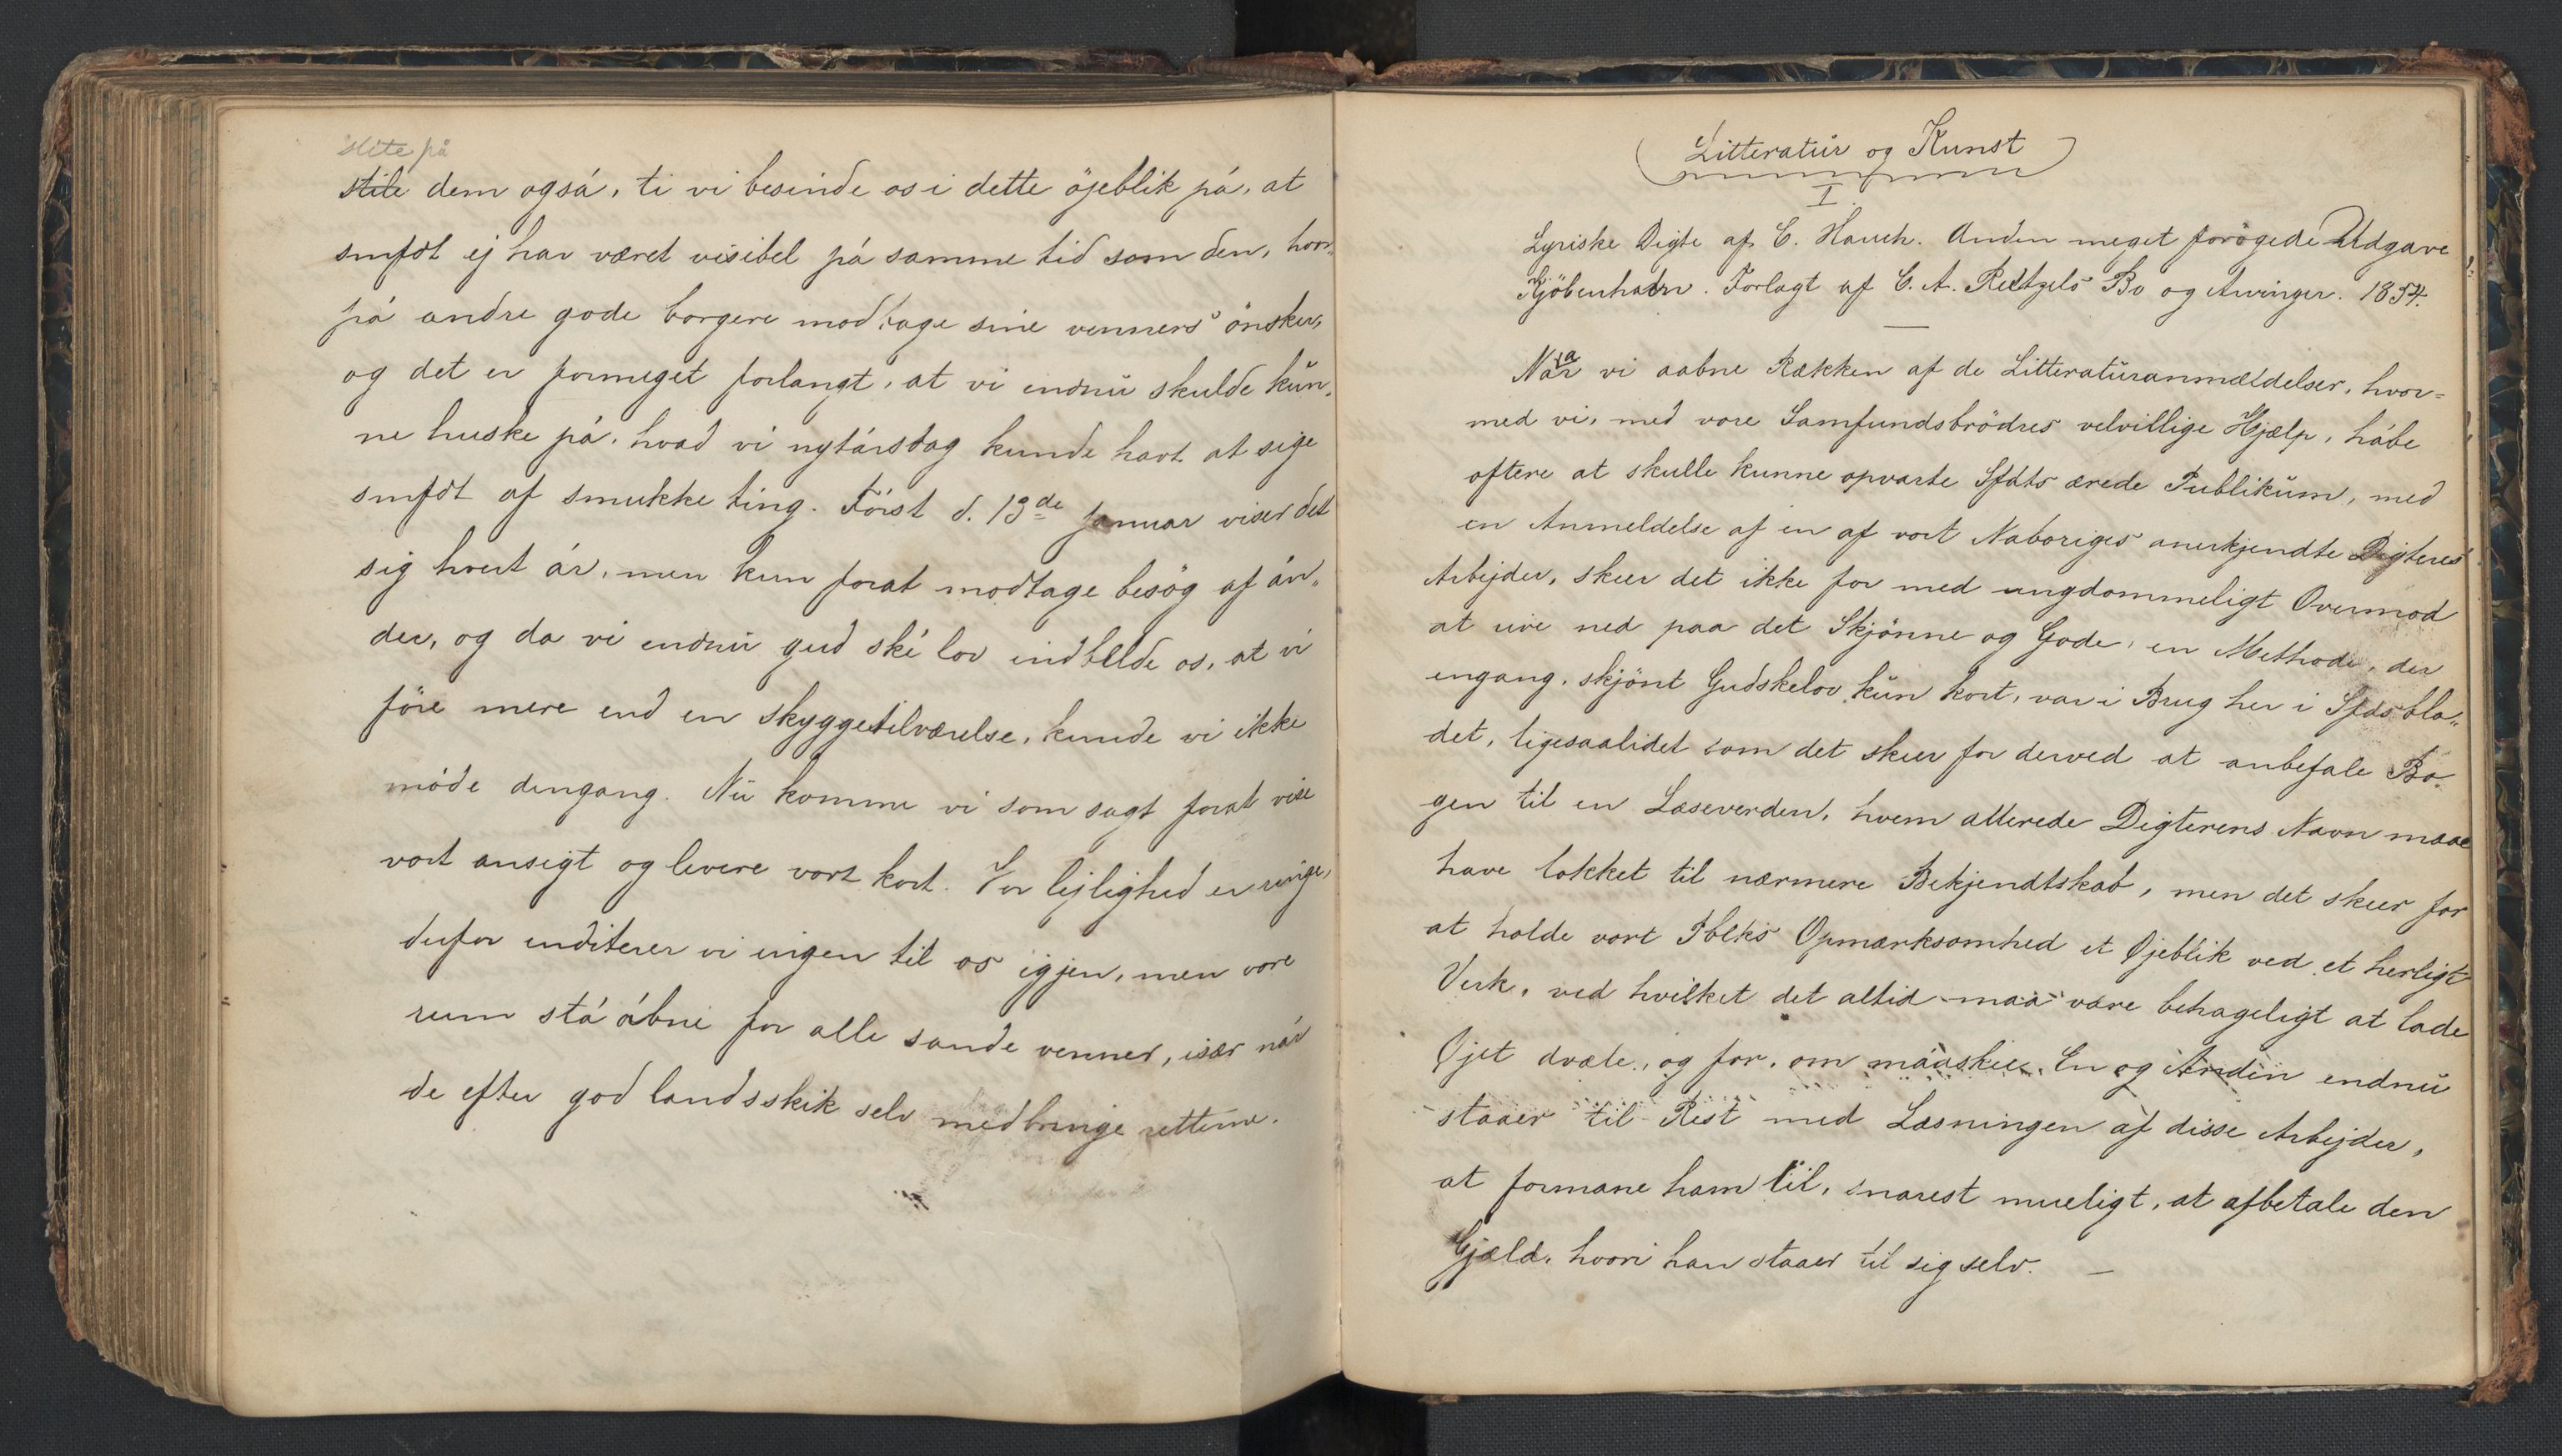 slite på
stile dem også, ti vi besinde os i dette öjeblik på, at
smfdt ej har været visibel på samme tid som den, hvor-
på andre gode borgere modtage sine venners önsker,
og det er formeget forlangt, at vi endnu skulde kun-
ne huske på, hvad vi nytårsdag kunde havt at sige
smfdt af smukke ting. Först d. 13de januar viser det
sig hvert år, men kun forat modtage besög af ån-
der, og da vi endnu gud ské lov indbilde os, at vi
före mere end en skyggetilværelse, kunde vi ikke
möde dengang. Nu komme vi som sagt forat vise
vort ansigt og levere vort kort. Vor lejlighed er ringe,
derfor inviterer vi ingen til os igjen, men vore
rum stå åbne for alle sande venner, især når
de efter god landsskik selv medbringe retterne.
Litteratur og Kunst
I.
Lyriske Digte af C. Hauch. Anden meget forögede Udgave
Kjöbenhavn. Forlagt af C. A. Reitzels Bo og Arvinger. 1854.
Naar vi aabne Rækken af de Litteraturanmældelser, hvor-
med vi, med vore Samfundsbrödres velvillige Hjælp, håbe
oftere at skulle kunne opvarte Sfdts ærede Publikum, med
en Anmeldelse af en af vort Naboriges anerkjendte Digteres
Arbejder, skeer det ikke for med ungdommeligt Overmod
at rive ned paa det Skjönne og Gode, en Methode, der
engang, skjönt Gudskelov kun kort, var i Brug her i Sfdsbla-
det, ligesaalidet som det skeer for derved at anbefale Bo-
gen til en Læseverden, hvem allerede Digterens Navn maae
have lokket til nærmere Bekjendtskab, men det skeer for
at holde vort Folks Opmærksomhed et Øjeblik ved et herligt
Verk, ved hvilket det altid maa være behageligt at lade
Øjet dvæle, og for, om måaskee En og Anden endnu
staaer til Rest med Læsningen af disse Arbejder,
at formane ham til, snarest mueligt, at afbetale den
Gjæld, hvori han staaer til sig selv. —